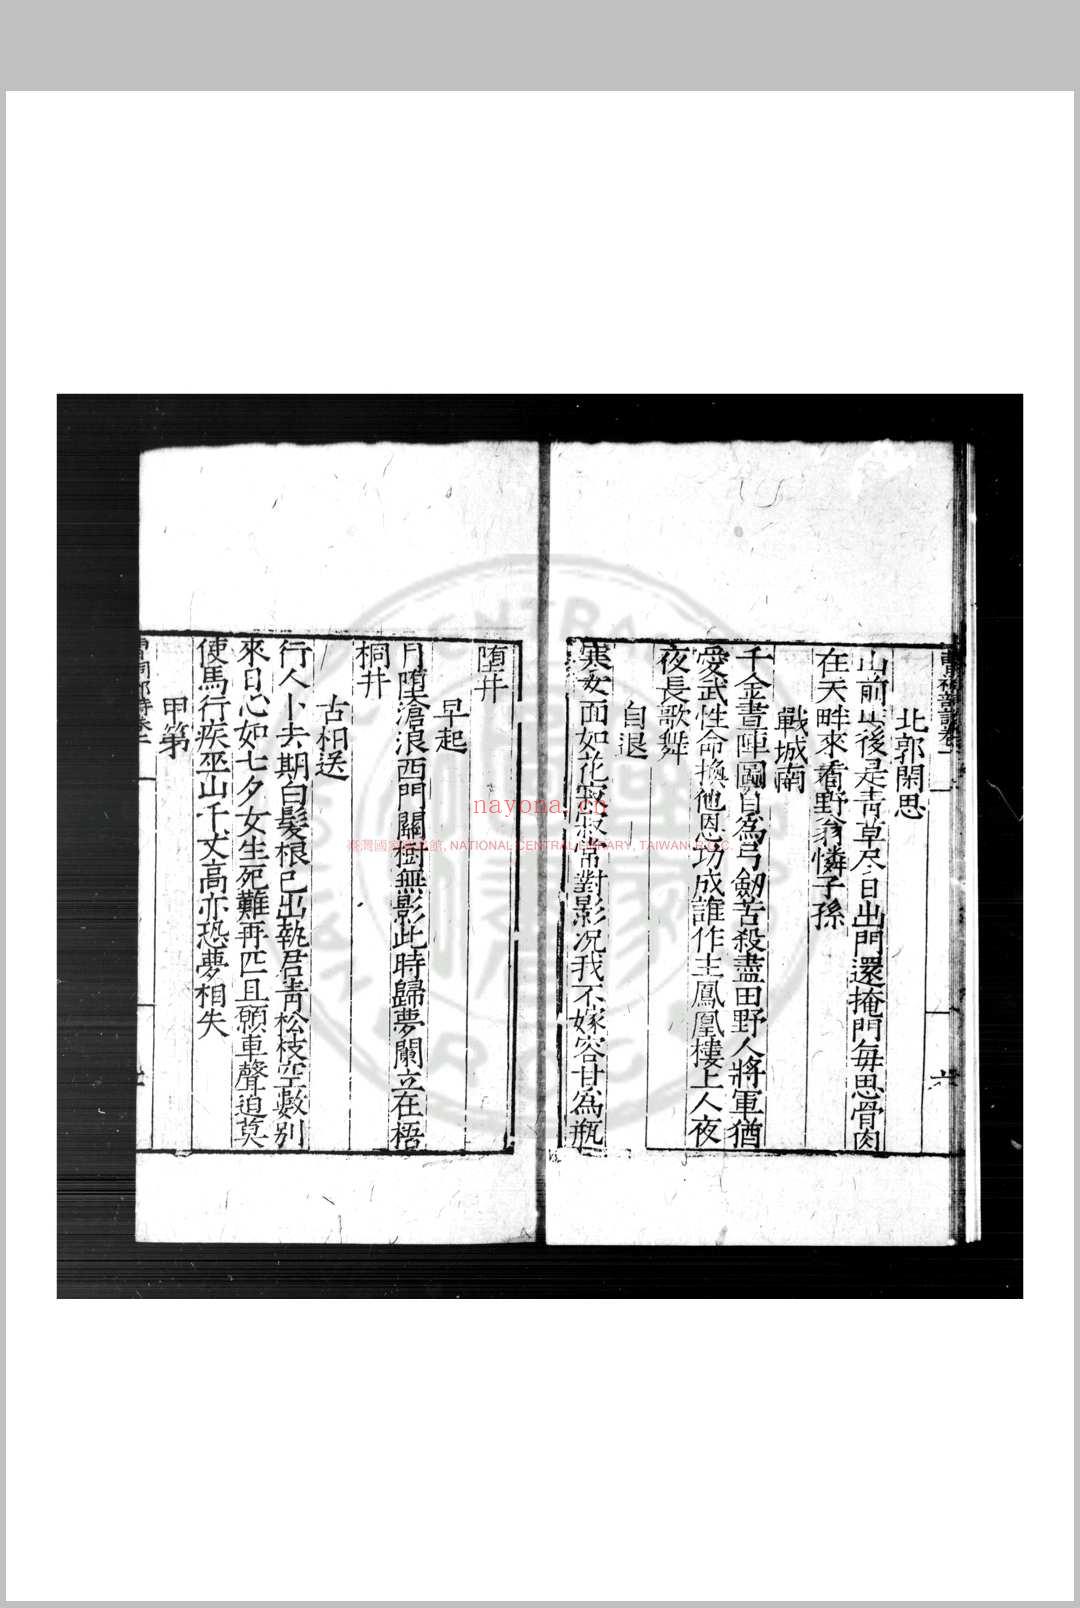 北郭閑思
山前山後是青草尽日出門還掩門每思骨肉
在天畔來看野翁憐子孫
戰城南
千金畫陣圖自為弓劒苦殺盡田野人將軍猶
愛武性命換他恩功成誰作主鳳凰樓上人夜
夜長歌舞
自退
寒女面如花寂寂常對影况我不嫁容甘為瓶
墮井
早起
月墮滄浪西門關樹無影此時歸夢闌立在梧
桐井
古相送
行人卜去期白髮根已出執君青松枝空數別
來日心如七夕女生死難再匹且願車聲迫莫
使馬行疾巫山千丈高亦恐夢相失
甲第
nayona.cn
臺灣國家圖書館, NATIONAL CENTRAL LIBRARY, TAIWAN, R.O.C.